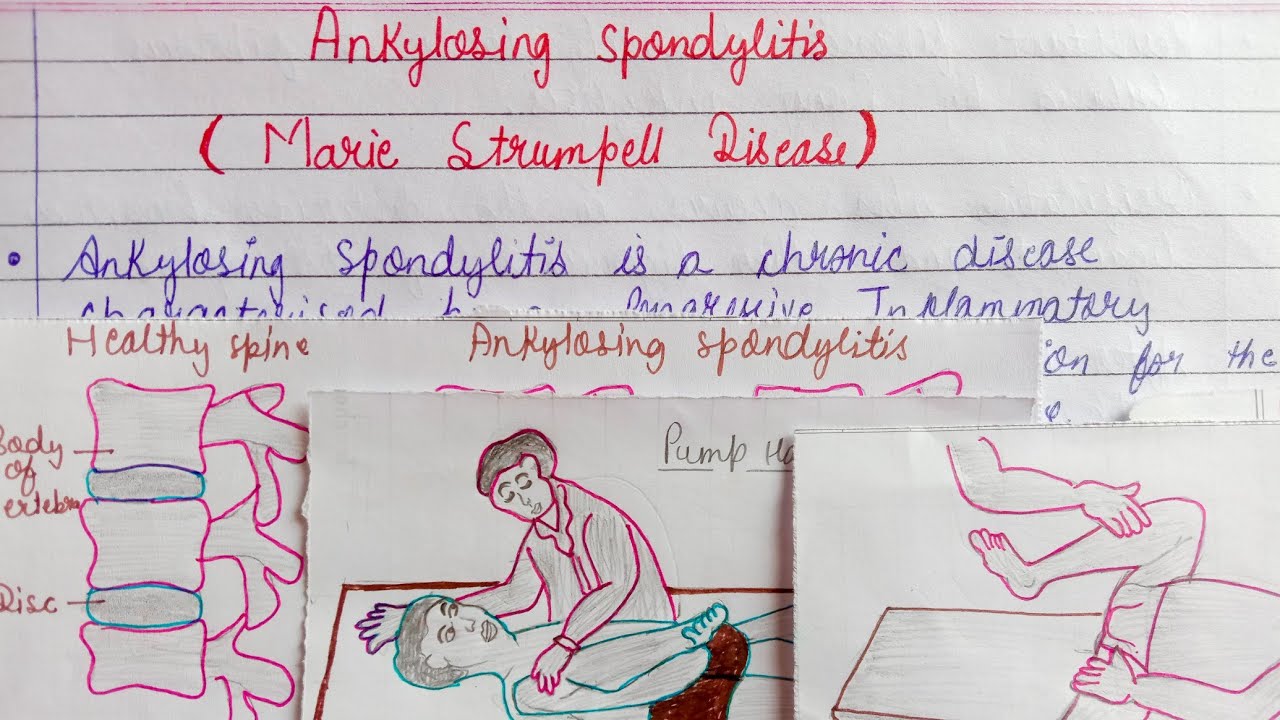 Ankylosing Spondylitis
(Marie Strumpell Disease)
• Ankylosing Spondylitis is a chronic disease
Progressive Inflammatory
Healthy spine
Ankylosing spondylitis
for the
Body
of
Disc
Pump